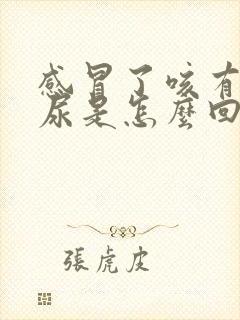 感冒了咳有
尿是怎麼回
張虎皮